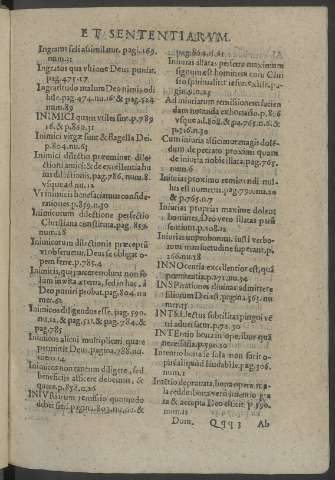 ET SENTENTIARVM.
Ingrati soli assimilatur. pag. 169.
num. 11
Ingratos qua vltione Deus puniat.
pag. 475. 17
Ingratitudo malum Deo nimis odi
bile. pag. 474. nu. 16. & pag. 524
num. 89
INIMICI quàm viles sint. p. 789
16. & p. 860. 31
Inimici virgæ sunt & flagella Dei.
p. 804. nu. 63
Inimici dilectio præeminet dile-
ctioni amici: & de excellentia hu
ius dilectionis, pag. 786. num. 8.
vsque ad nu. 12
inimicis benefaciamus conside-
rationes p. 859. nu. 30
Inimicorum dilectione perfectio
Christiana constituta. pag. 859.
num. 28
Inimicorum dilectionis præceptũ
vt obseruetur, Deus se obligat o-
pem ferre. p. 785. 4
Inimicis, qui parcere nolunt non so
lum in vita æterna, sed in hac à
Deo puniri probat. pag. 804. nu
mer. 62
Inimicos diligendos esse. pag. 590.
nu. 12. & pag. 511. & pag. 784. &
pag. 785
Inimicos alicui multiplicari quare
permittit Deus. pagina. 788. nu.
mero. 14
Inimicos non tantum diligere, sed
beneficijs afficere debemus, &
quare. p. 858. nu. 26
INIVRiarum remissio quomodo
debit fieri. pagin. 803. nu. 60. &
pag. 804. nu. 61
Iniurias illatas perferre maximum
signum est hominem cum Chri
sto spiritualiter resurrexisse. pa-
gin.
Ad iniuriarum remissionem facien
dam notanda exhortatio. p. 806
vsque ad. 808. & pa. 765. n. 6. &
p. 716. n. 30
Cum iniuria afficimur magis dolé-
dum de peccato proximi quam
de iniuria nobis illata. pag. 765.
num. 6
Iniurias proximo remittendi mul-
lus est numerus. pag. 790. nu. 19
& p. 765. n. 7
Iniurias proprias maxime dolent
homines, Deo vero illatas parũ
sentiunt. p. 108. 12
Iniurias improborum, iusti verbo-
rum mansuetudine superant, p.
166. nu. 18
INNOcentia excellentior est, quá
pœnitentia. p. 271. nu. 34
INSPirationes diuinas admittere
filiorum Dei est. pagina. 363. nu
mer. 13
INTELlectus subtilitas pingui vé
tri aduersatur. p. 72. n. 30
INTEntio bona in operibus quá
necessaria. p. 590. n. 10
Intentio bona se sola non facit o-
pus aliquod laudabile. pag. 306.
num. 1
Intentio deprauata, bona opera ma
la reddit: bona vero opera gra-
ta & accepta Deo efficit. p. 590.
num. 11
Dom. Qqq 3 Ab